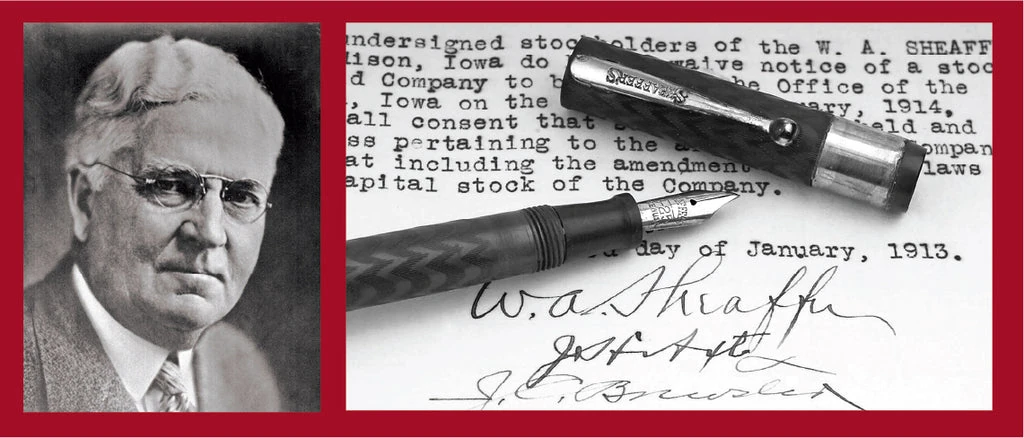 undersigned stockholders of the W. A. SHEAFF
dison, Iowa do waive notice of a stoc
d Company to b the Office of the
, Iowa on the ary, 1914,
all consent that eld and
ss pertaining to the ompan
at including the amendment laws
apital stock of the Company.
SHEAFFER'S
day of January, 1913.
W. A. Sheaffer